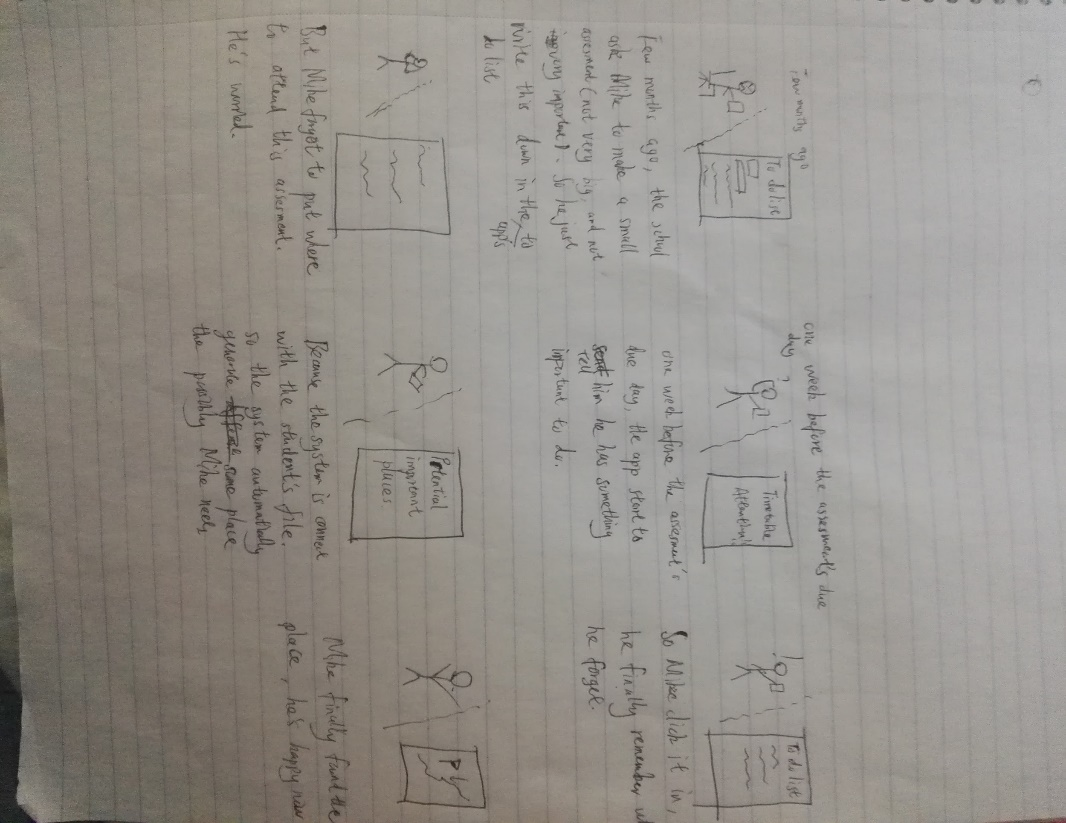 Few months ago
To do list
Few months ago, the school
ask Mike to make a small
assesment (not very big, and not
very important). So he just
write this down in the to
app's
do list
One week before the assesment's due
day
Timetable
Attention!!
one week before the assesment's
due day, the app start to
tell him he has something
important to do.
!
To do list
So Mike click it in,
he finally remember
he forget.
But Mike forgot to put where
to attend this assesment.
He's worried.
Potential
important
places
Because the system is connect
with the student's file.
so the system automatically
generate some place
the possibly Mike needs
Mike finally found the
place, he's happy now